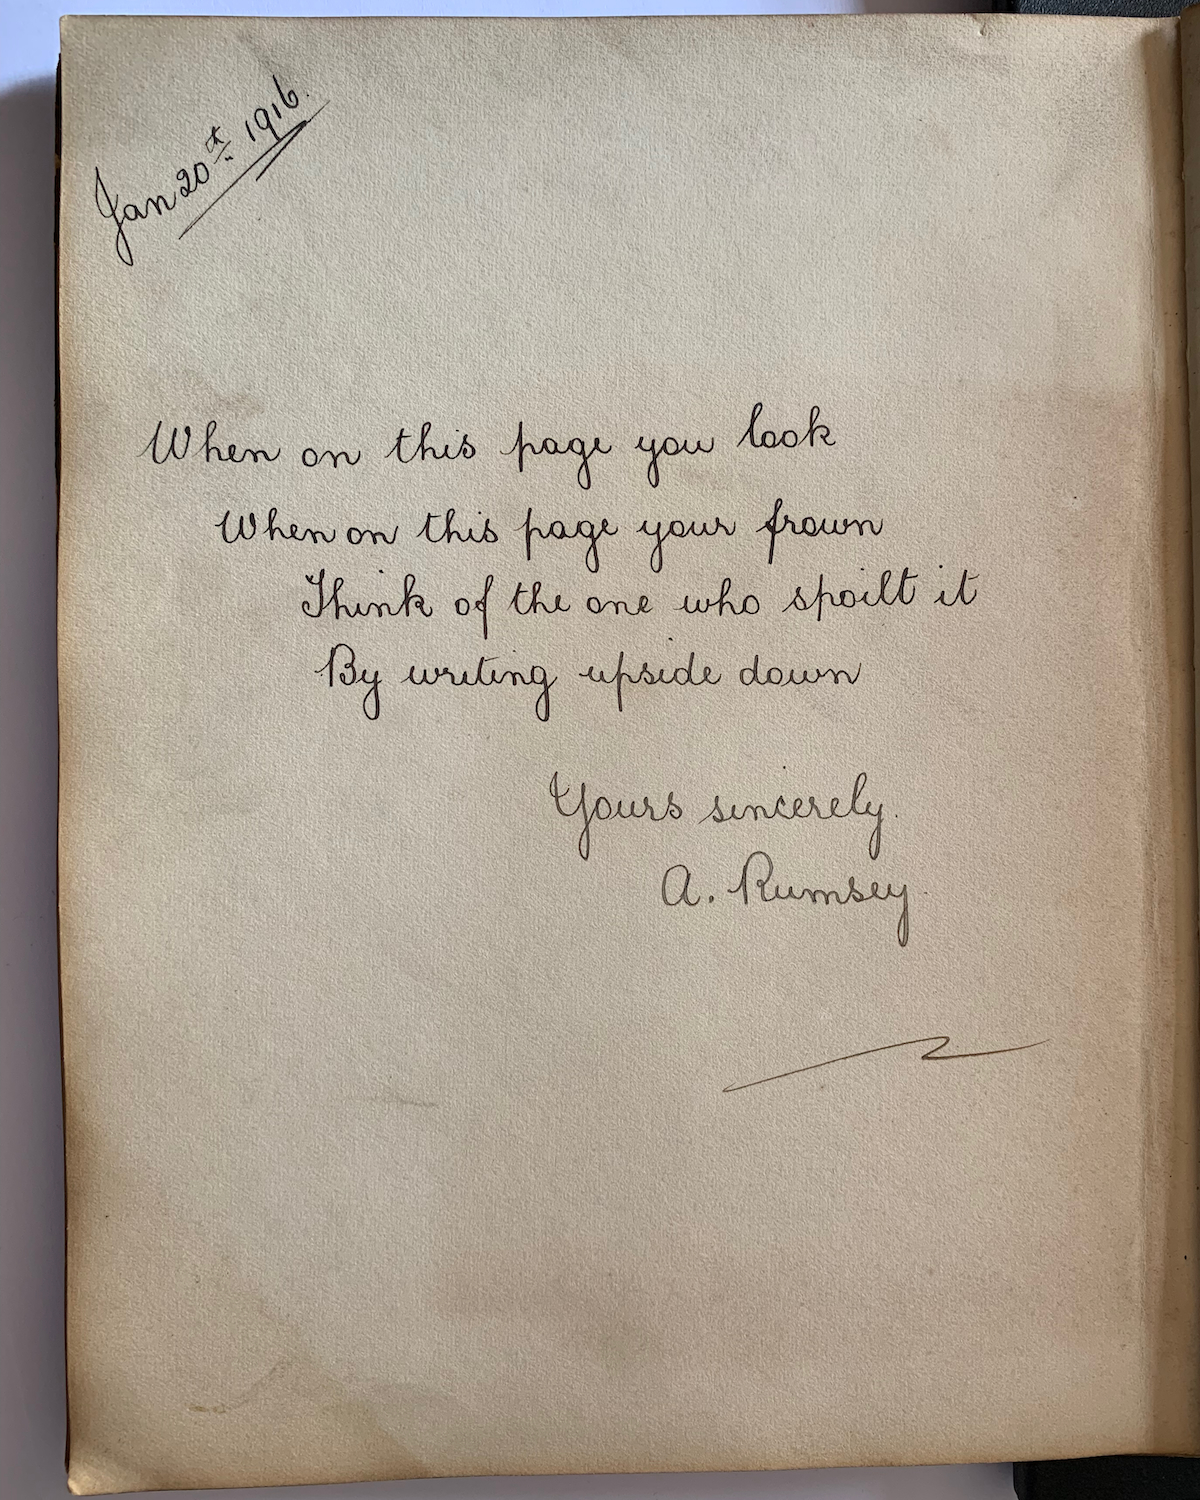 Jan 20th 1916.
When on this page you look
When on this page your frown
Think of the one who spoilt it
By writing upside down
Yours sincerely.
A. Rumsey.